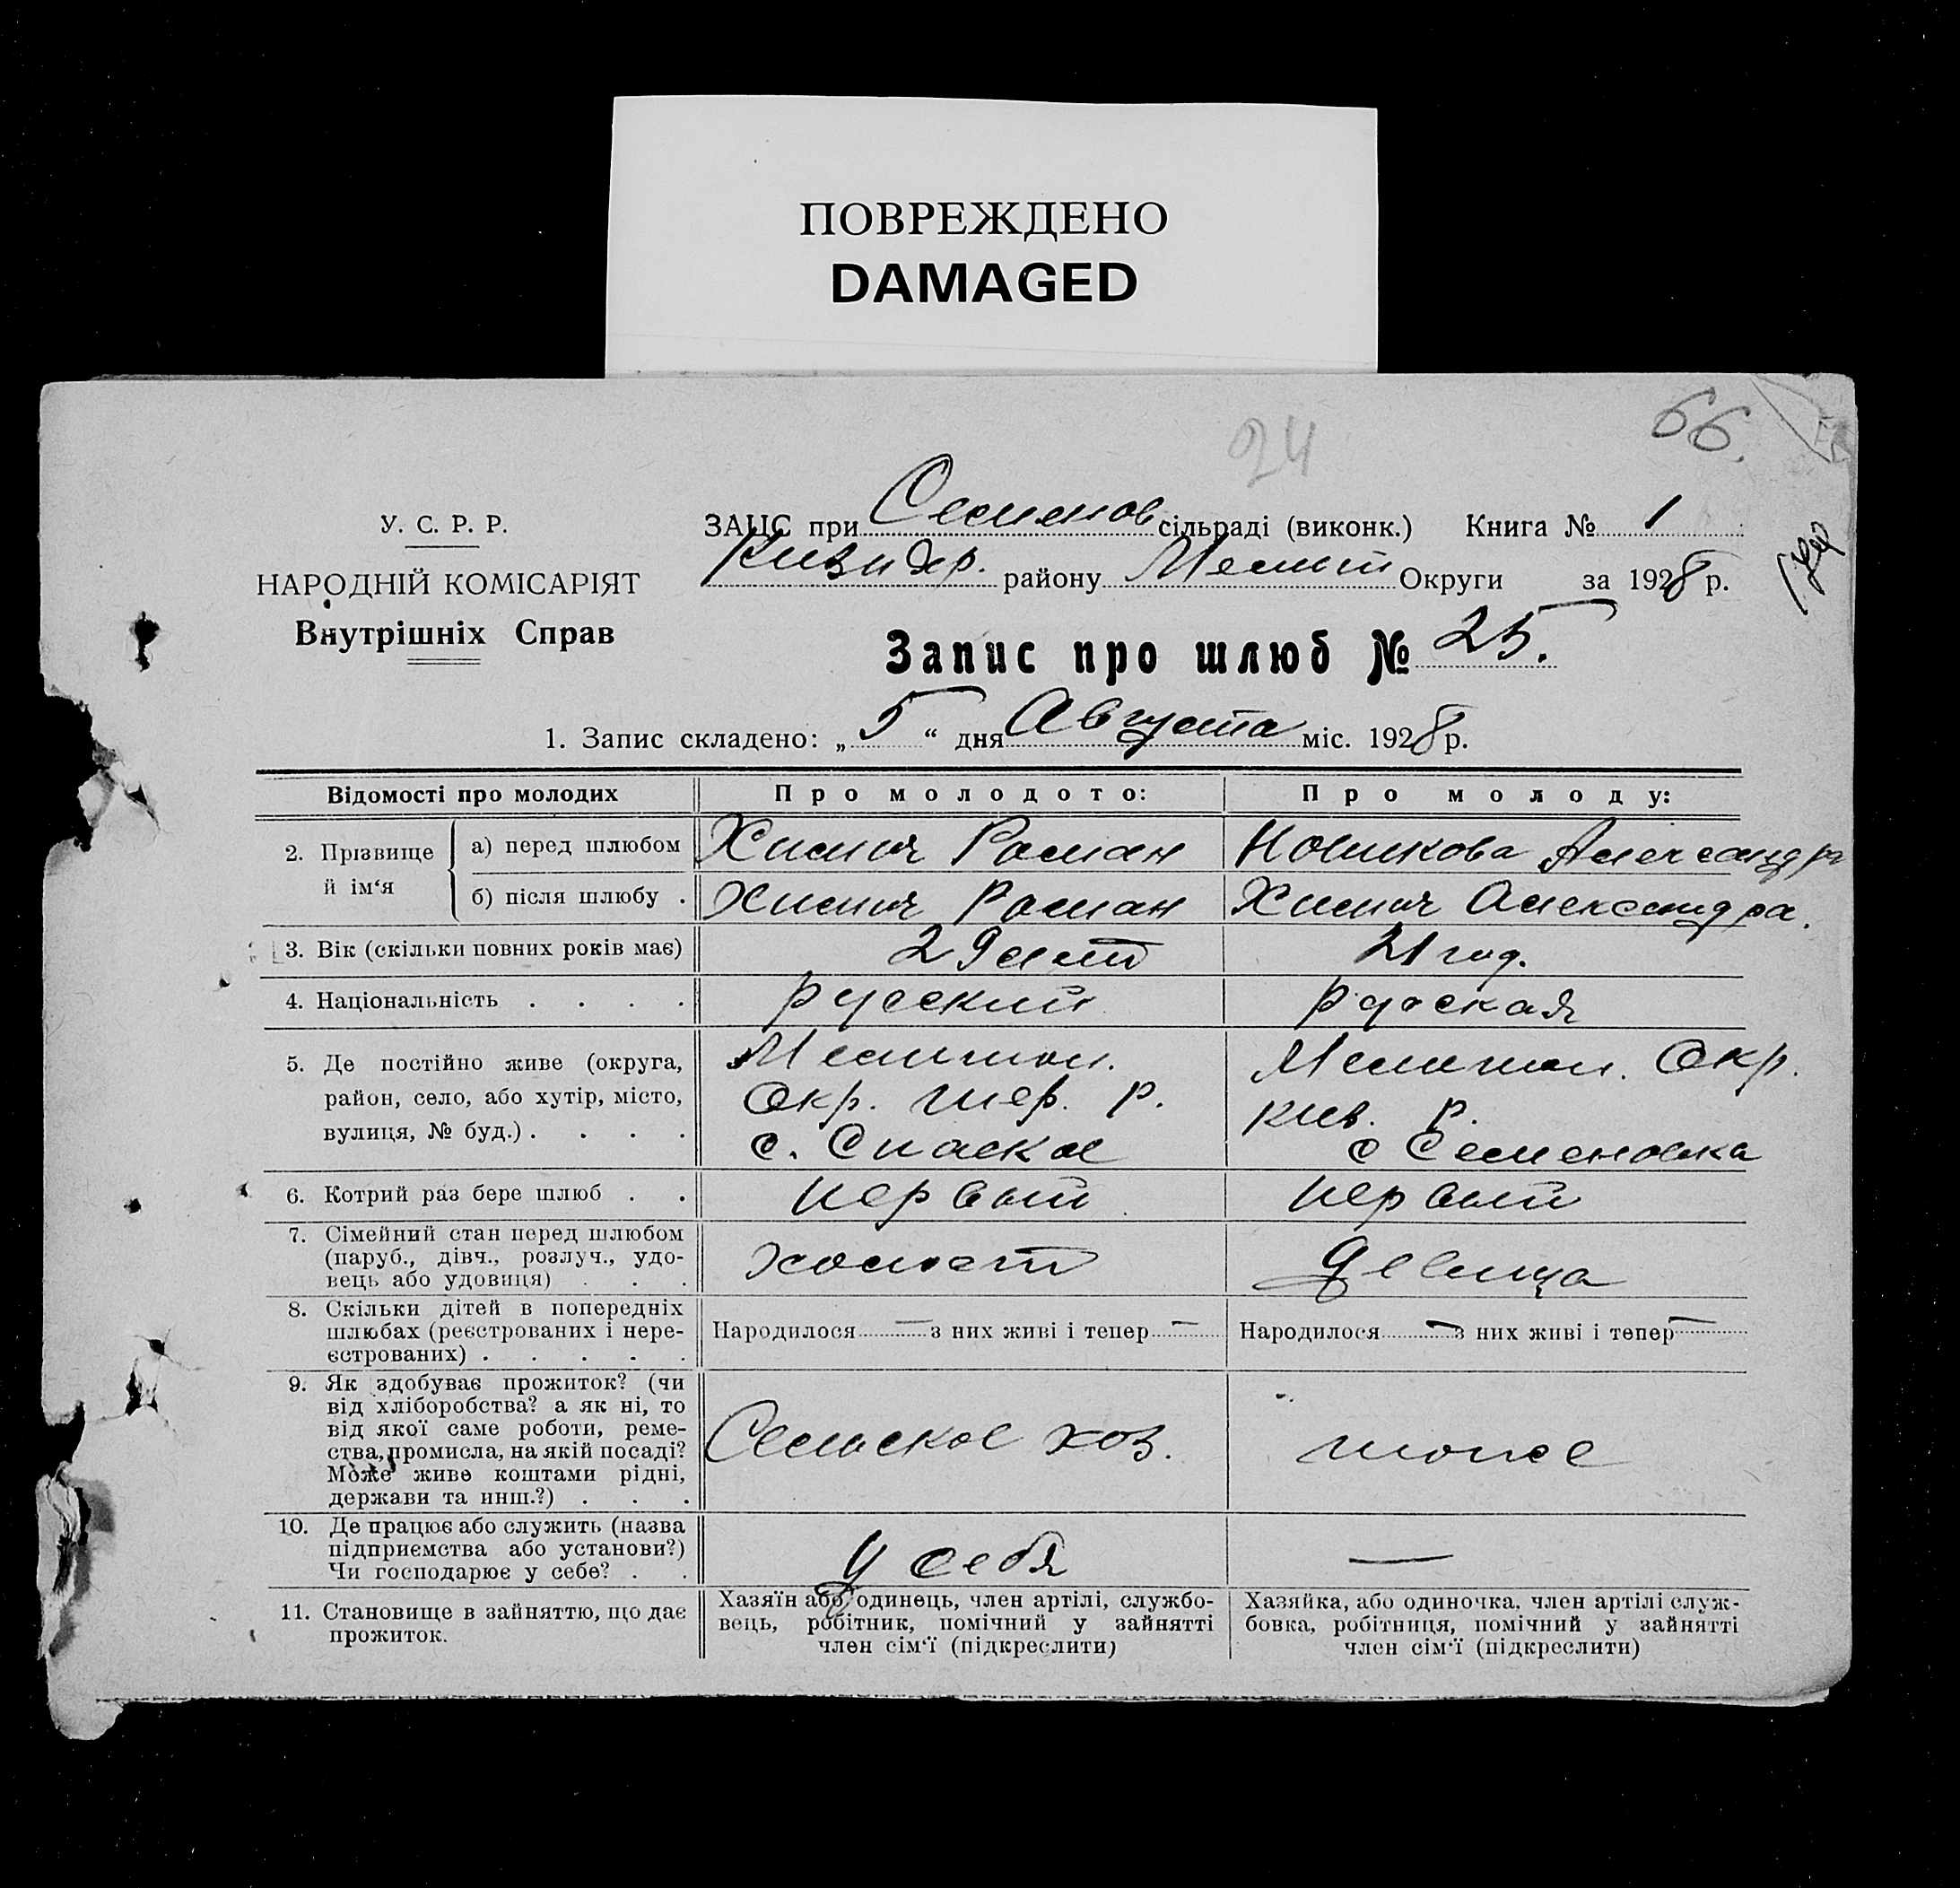 ПОВРЕЖДЕНО
DAMAGED
66.
24
У. С. Р. Р.
НАРОДНІЙ КОМІСАРІЯТ
Внутрішніх Справ
ЗАЦС при Семенов сільраді (виконк.) Книга № 1
Кизияр. району Мелит Округи за 1928 р.
Запис про шлюб № 25.
1. Запис складено: „ 5 “ дня Августа міс. 1928 р.
Відомості про молодих Про молодого: Про молоду:
2. Прізвище й ім‘я
а) перед шлюбом Химич Роман Новикова Александра
б) після шлюбу . Химич Роман Химич Александра.
3. Вік (скільки повних років має) 29 лет 21 год.
4. Національність . . . . Русский Русская
5. Де постійно живе (округа,
район, село, або хутір, місто,
вулиця, № буд.) . . . .
Мелитоп.
Окр. Р.
с. Спаское
Мелитоп. Окр.
Киз. Р.
с Семеновка
6. Котрий раз бере шлюб . . первый первый
7. Сімейний стан перед шлюбом
(паруб., дівч., розлуч., удо-
вець або удовиця) . . .
холост Девица
8. Скільки дітей в попередніх
шлюбах (реєстрованих і нере-
єстрованих) . . . . .
Народилося — з них живі і тепер — Народилося — з них живі і тепер —
9. Як здобуває прожиток? (чи
від хліборобства? а як ні, то
від якої саме роботи, реме-
ства, промисла, на якій посаді?
Може живе коштами рідні,
держави та инш.?) . . .
Сельское хоз. тоже
10. Де працює або служить (назва
підприємства або установи?)
Чи господарює у себе? . .
У себя —
11. Становище в зайняттю, що дає
прожиток.
Хазяїн або одинець, член артілі, службо-
вець, робітник, помічний у зайнятті
член сім‘ї (підкреслити)
Хазяйка, або одиночка, член артілі служ-
бовка, робітниця, помічний у зайнятті
член сім‘ї (підкреслити)